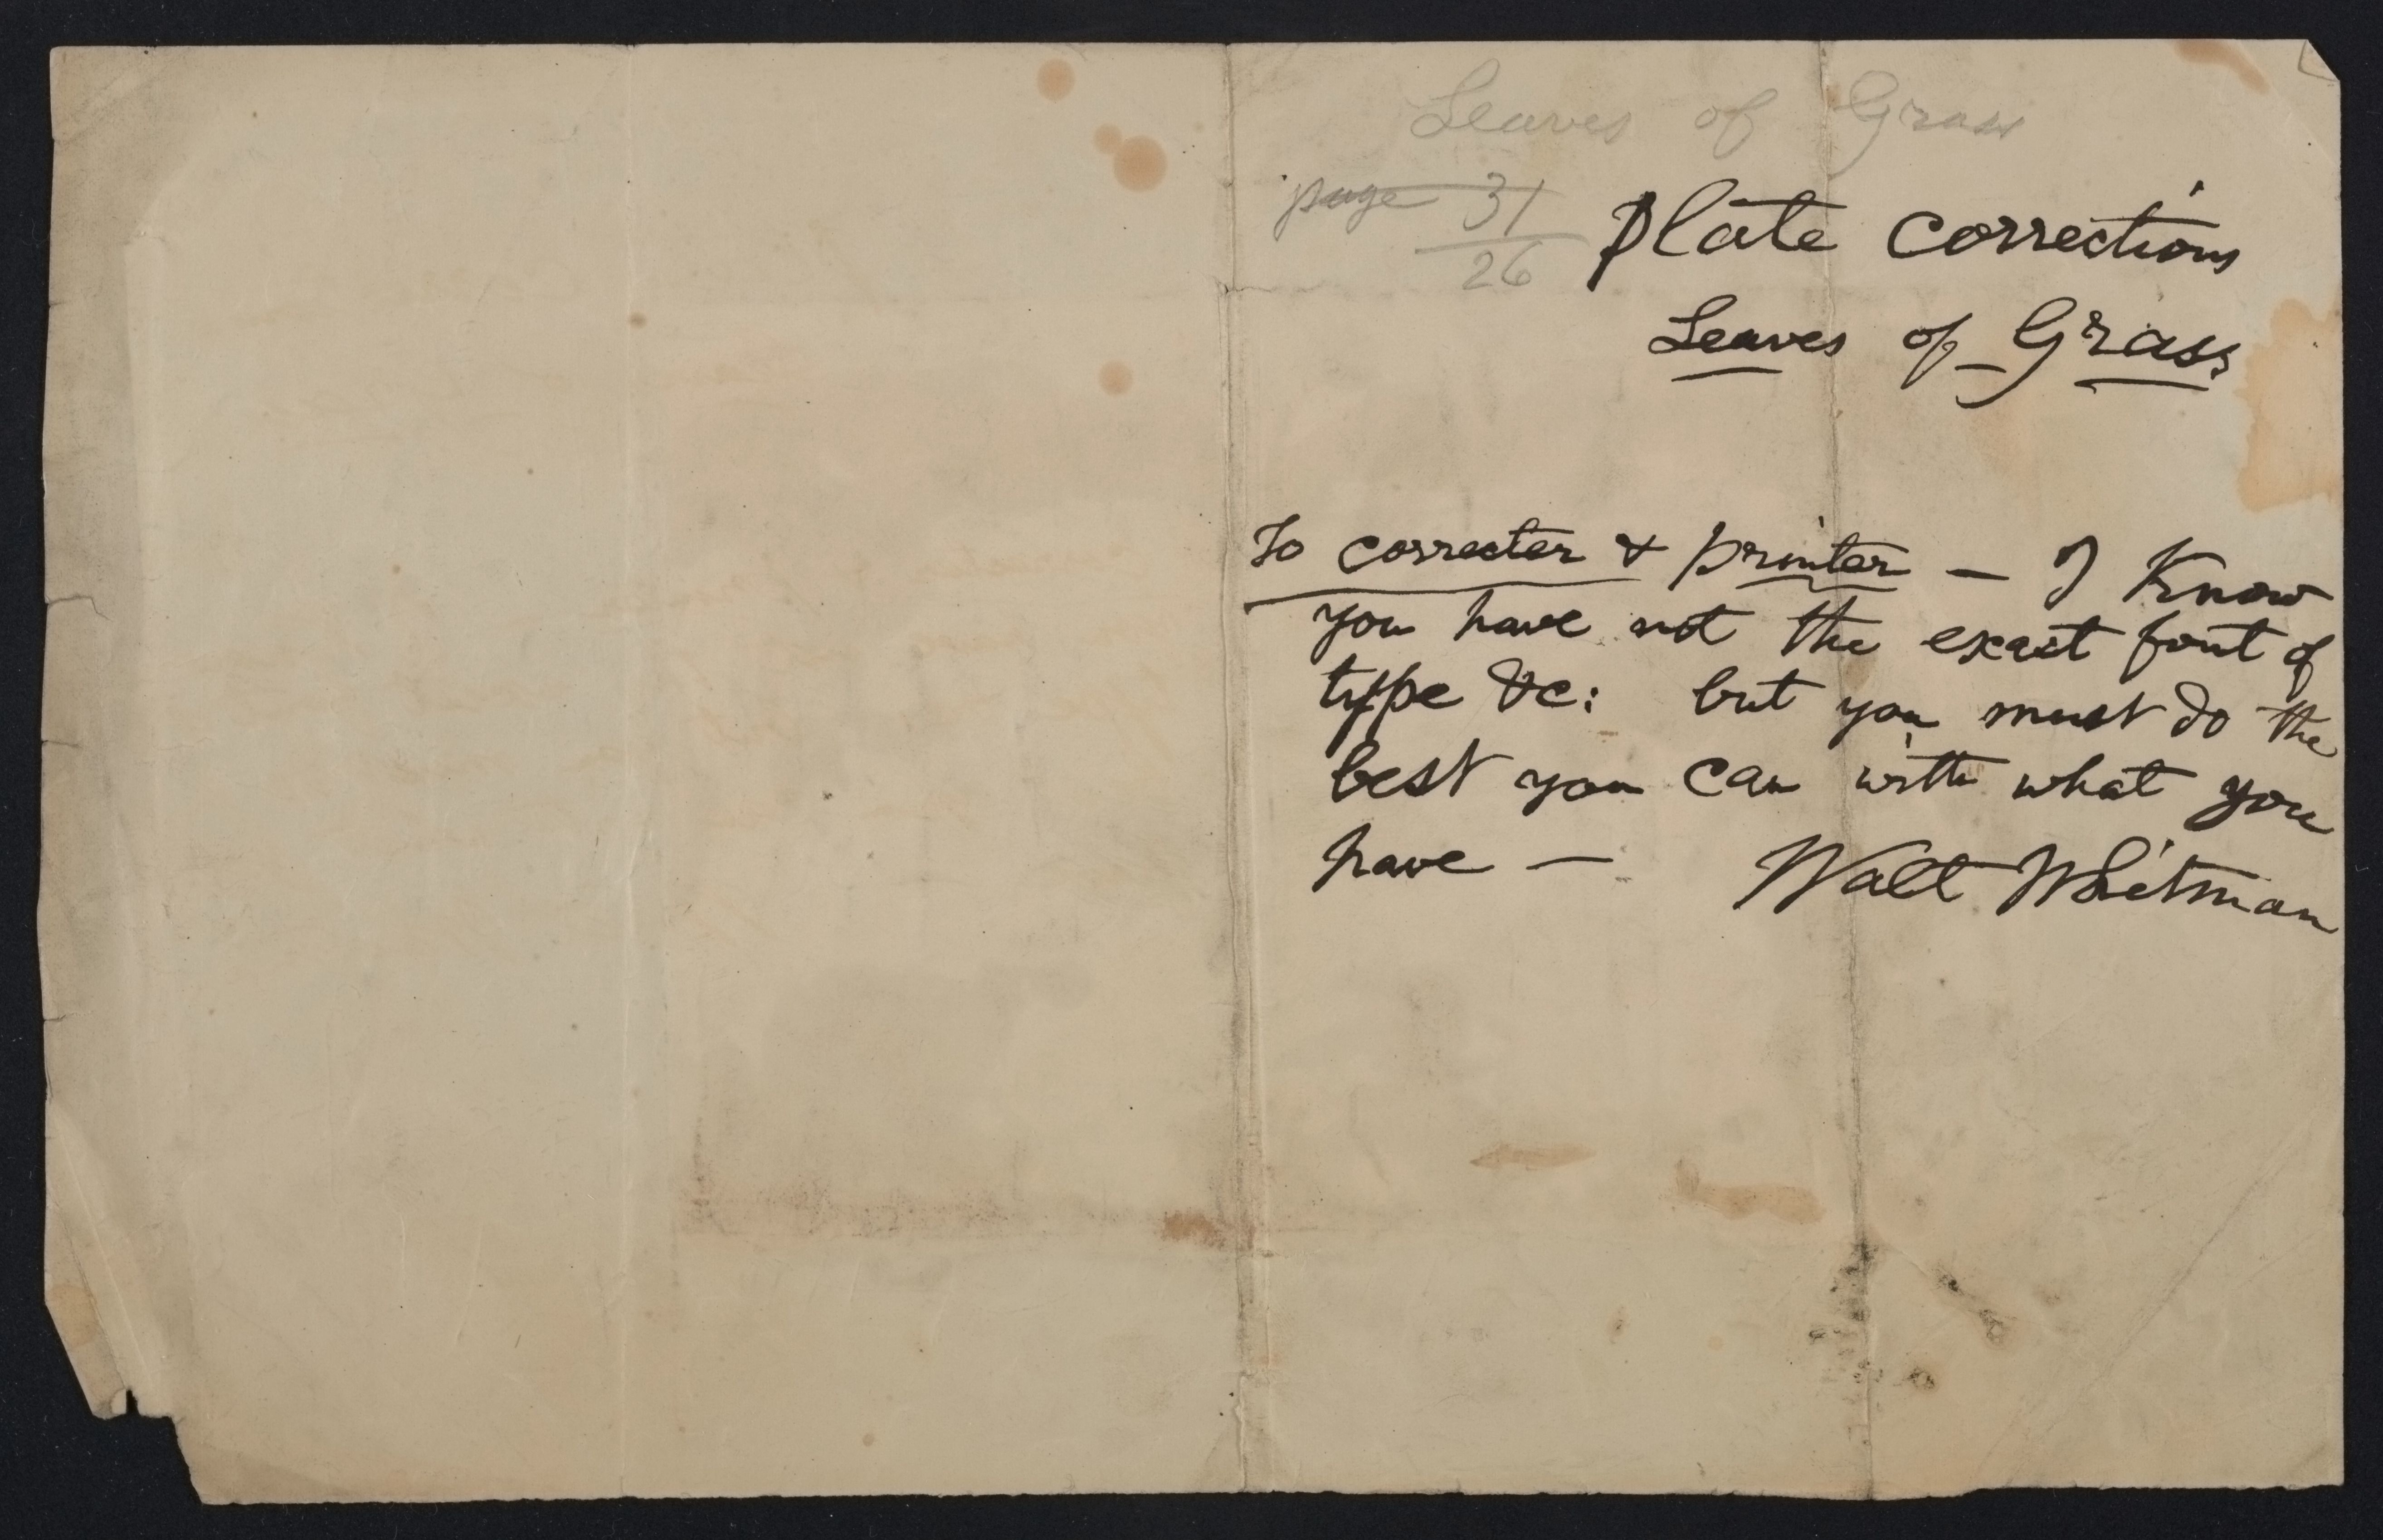 Leaves of Grass
page 31
26
Plate corrections
Leaves of Grass
To correcter & printer — I Know
you have not the exact font of
type &c: but you must do the
best you can with what you
have — Walt Whitman